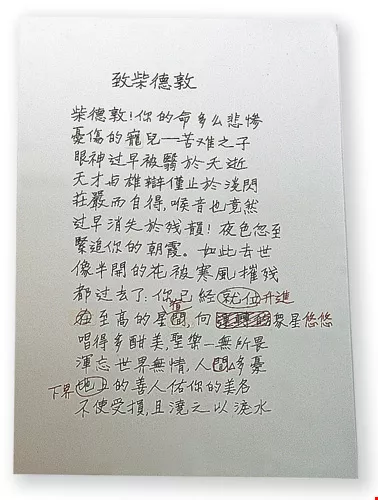 致柴德敦
柴德敦!你的命多么悲惨
憂傷的寵兒——苦难之子
眼神过早被翳於夭逝
天才与雄辯僅止於淡閃
莊嚴而自得,喉音也竟然
过早消失於残韻!夜色忽至
緊追你的朝霞。如此去世
像半開的花被寒風摧残
都过去了:你已经就位升進
在至高的星間,向眾星悠悠
唱得多酣美聖樂—無所
渾忘世界無情,人間多憂
下界地上的善人佑你的美名
不使受損,且澆之以淚水